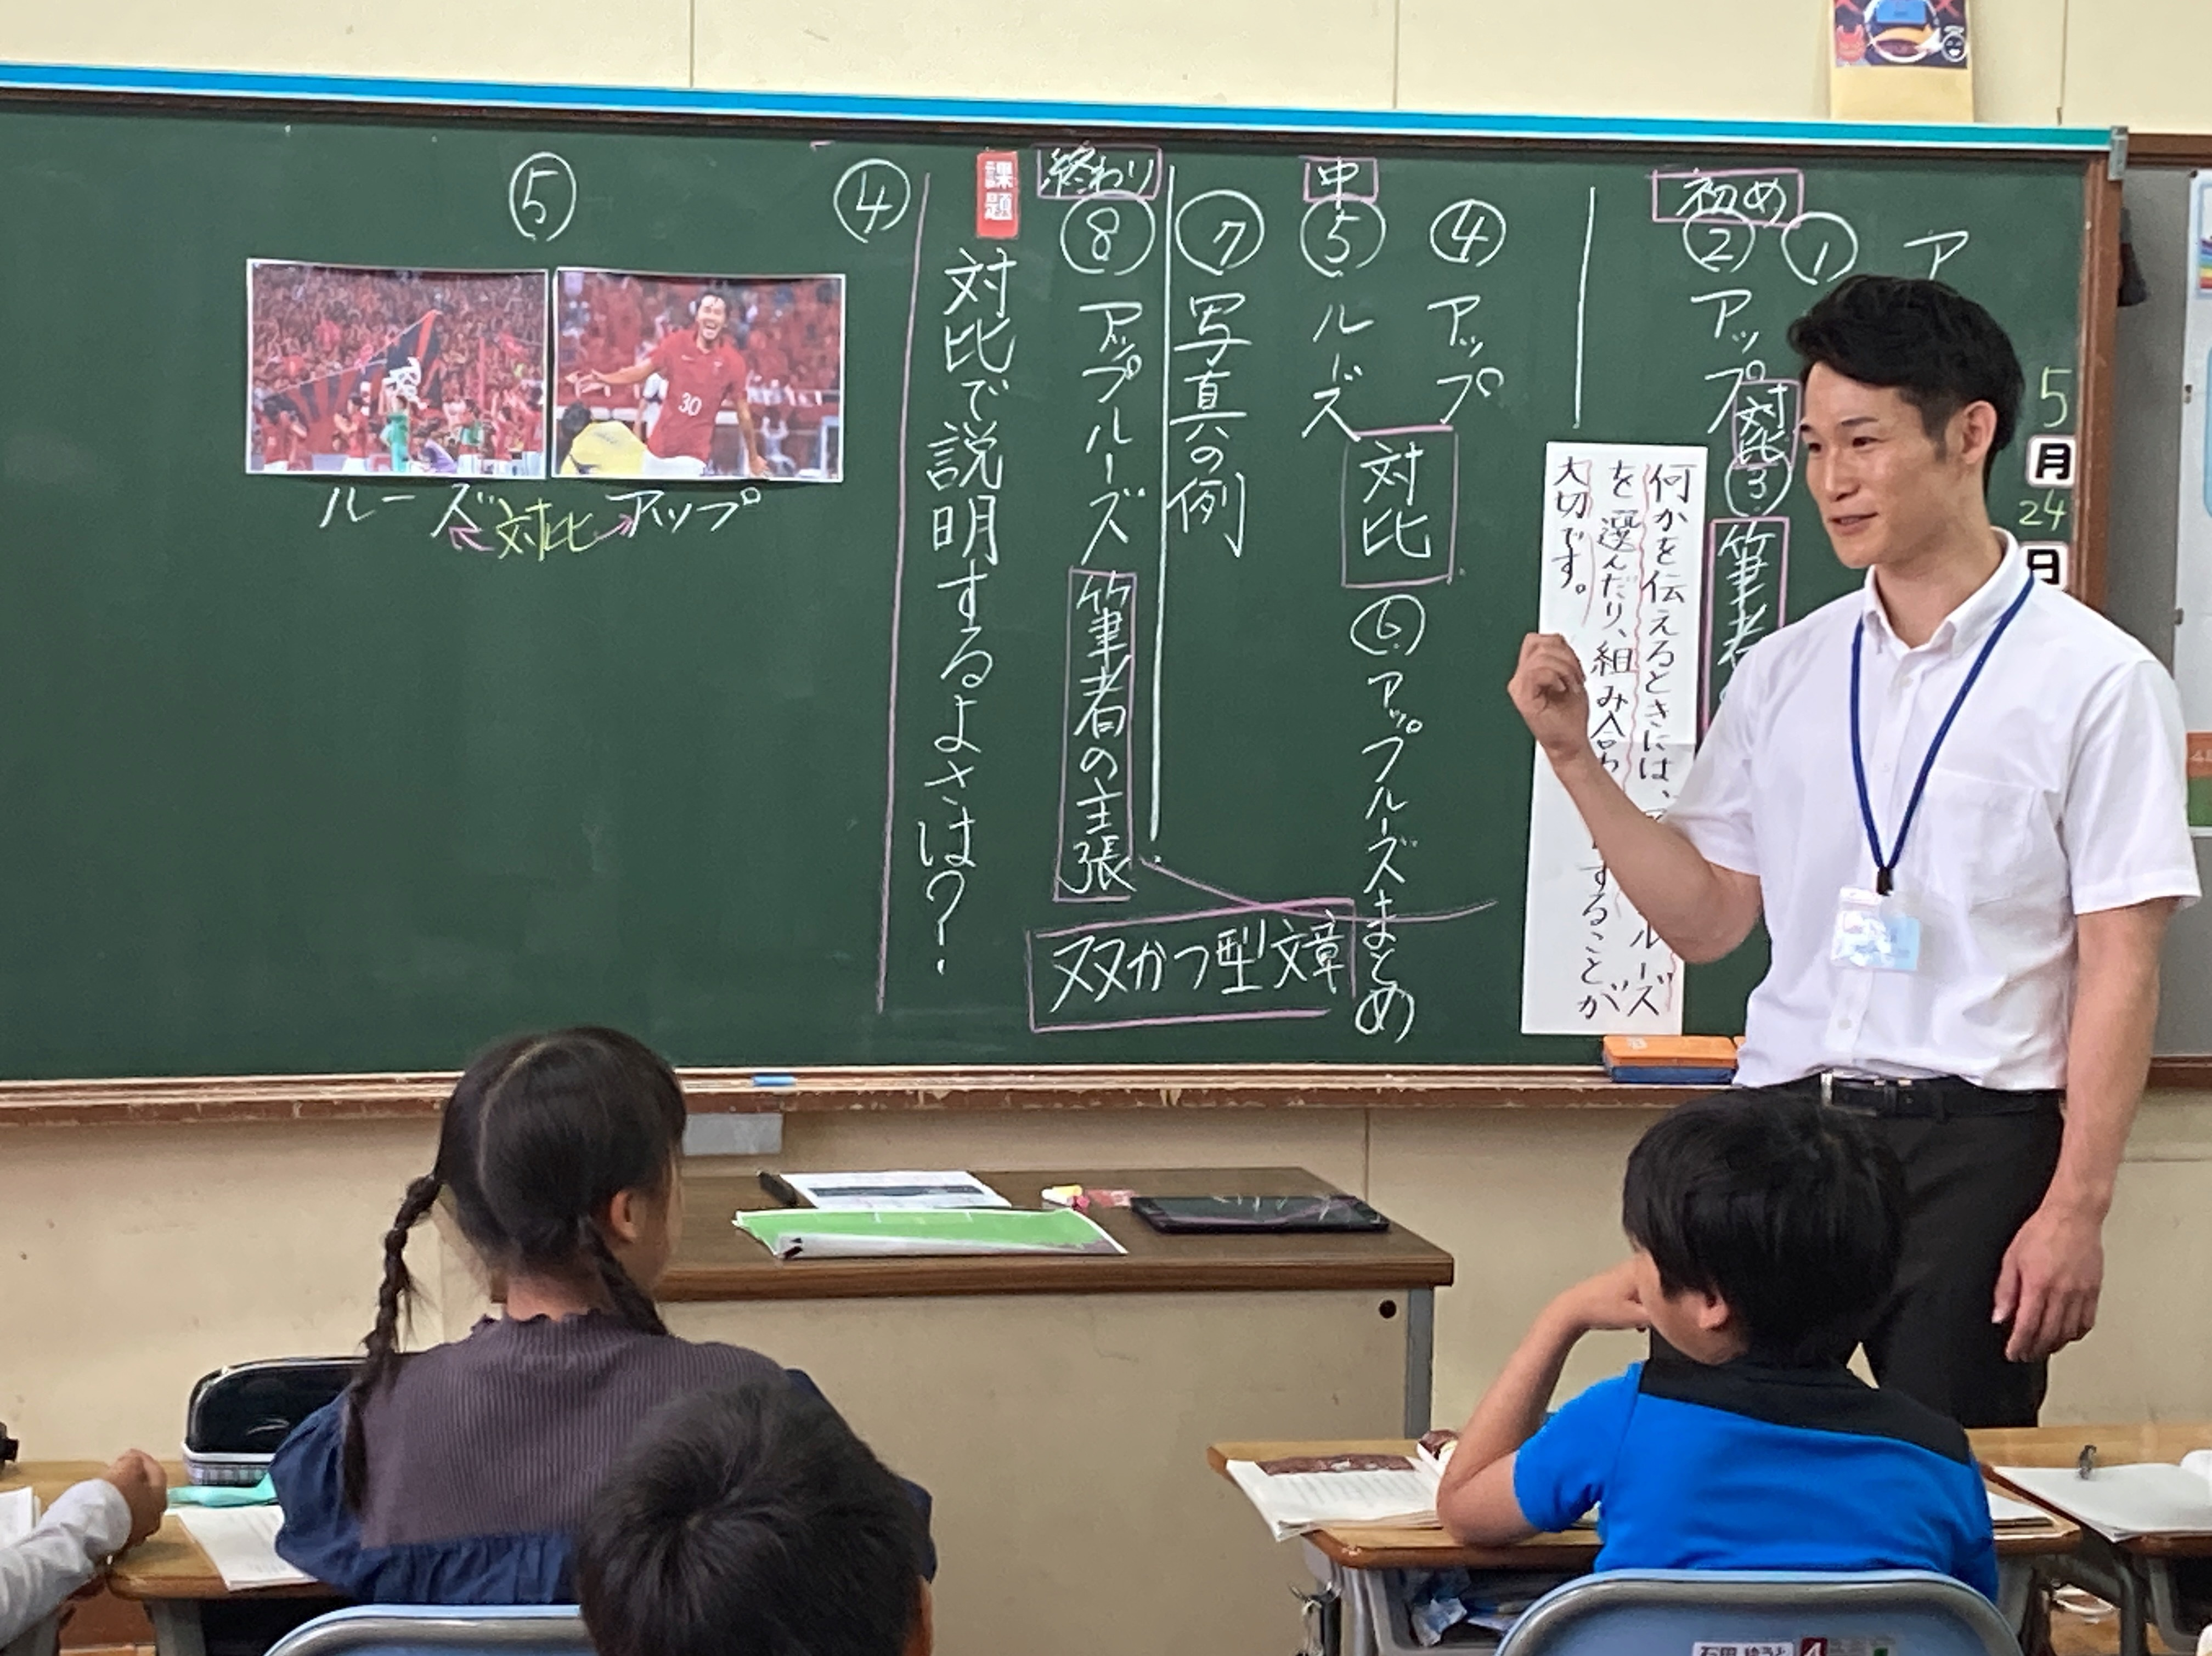 5
月
24
日
ア
初め
①
②
アップ
対比
③
筆者
何かを伝えるときには、
ルーズ
を選んだり、組み合わ
することが
大切です。
中
④
アップ
対比
⑤
ルーズ
⑥アップルーズまとめ
⑦写真の例
終わり
⑧アップルーズ
筆者の主張
双かつ型文章
課題
対比で説明するよさは?
④
⑤
30
アップ
対比
ルーズ